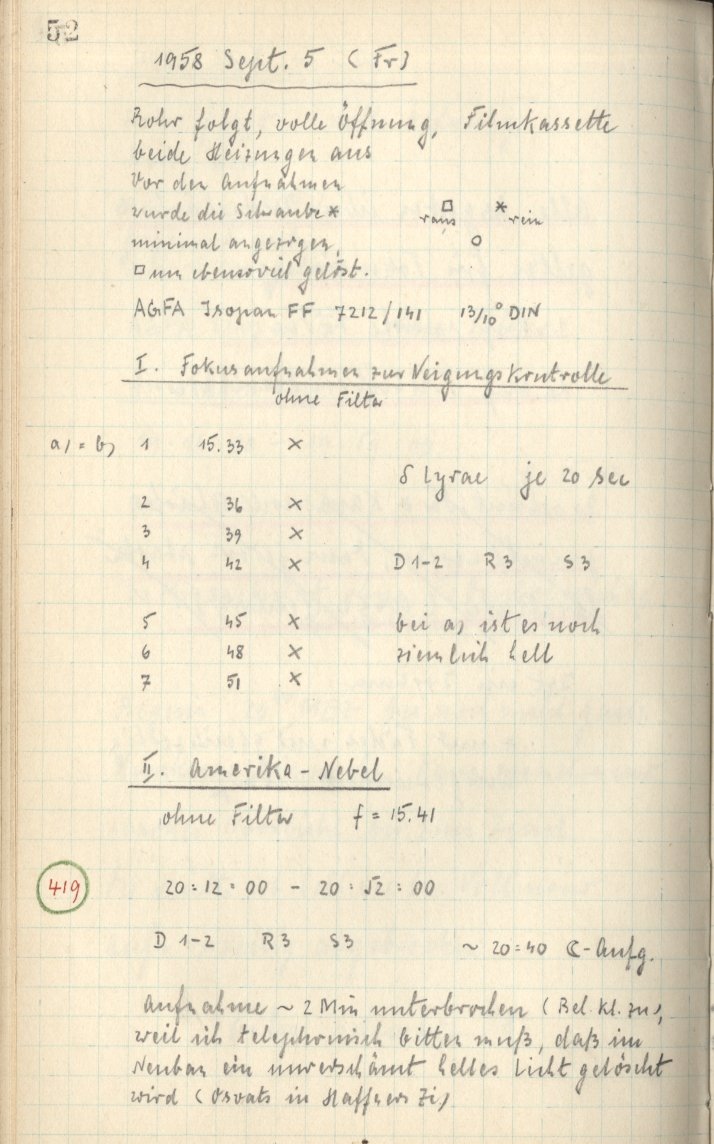 52
1958 Sept. 5 (Fr)
Rohr folgt, volle Öffnung, Filmkassette
beide Heizungen aus
Vor den Aufnahmen
wurde die Schraube * □ raus * rein
minimal angezogen, ○
□ um ebensoviel gelöst.
AGFA Isopan FF 7212/141 13/10° DIN
I. Fokusaufnahmen zur Neigungskontrolle
ohne Filter
a) = b) 1 15.33 ×
δ Lyrae je 20 sec
2 36 ×
3 39 ×
4 42 × D 1-2 R 3 S 3
5 45 × bei a) ist es noch
6 48 × ziemlich hell
7 51 ×
II. Amerika-Nebel
ohne Filter f = 15.41
419 20:12:00 - 20:52:00
D 1-2 R 3 S 3 ~ 20:40 ☾-Aufg.
Aufnahme ~ 2 Min unterbrochen (Bel. Kl. zu),
weil ich telephonisch bitten muß, daß im
Neubau ein unverschämt helles Licht gelöscht
wird (Osvats in Haffners Zi)